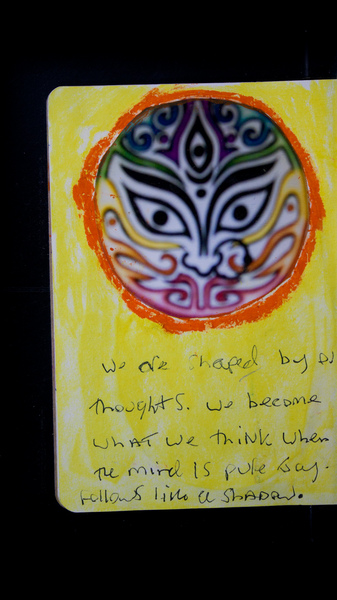 we are shaped by
thoughts. we become
what we think when
The mind is pure Joy.
Follows like a shadow.